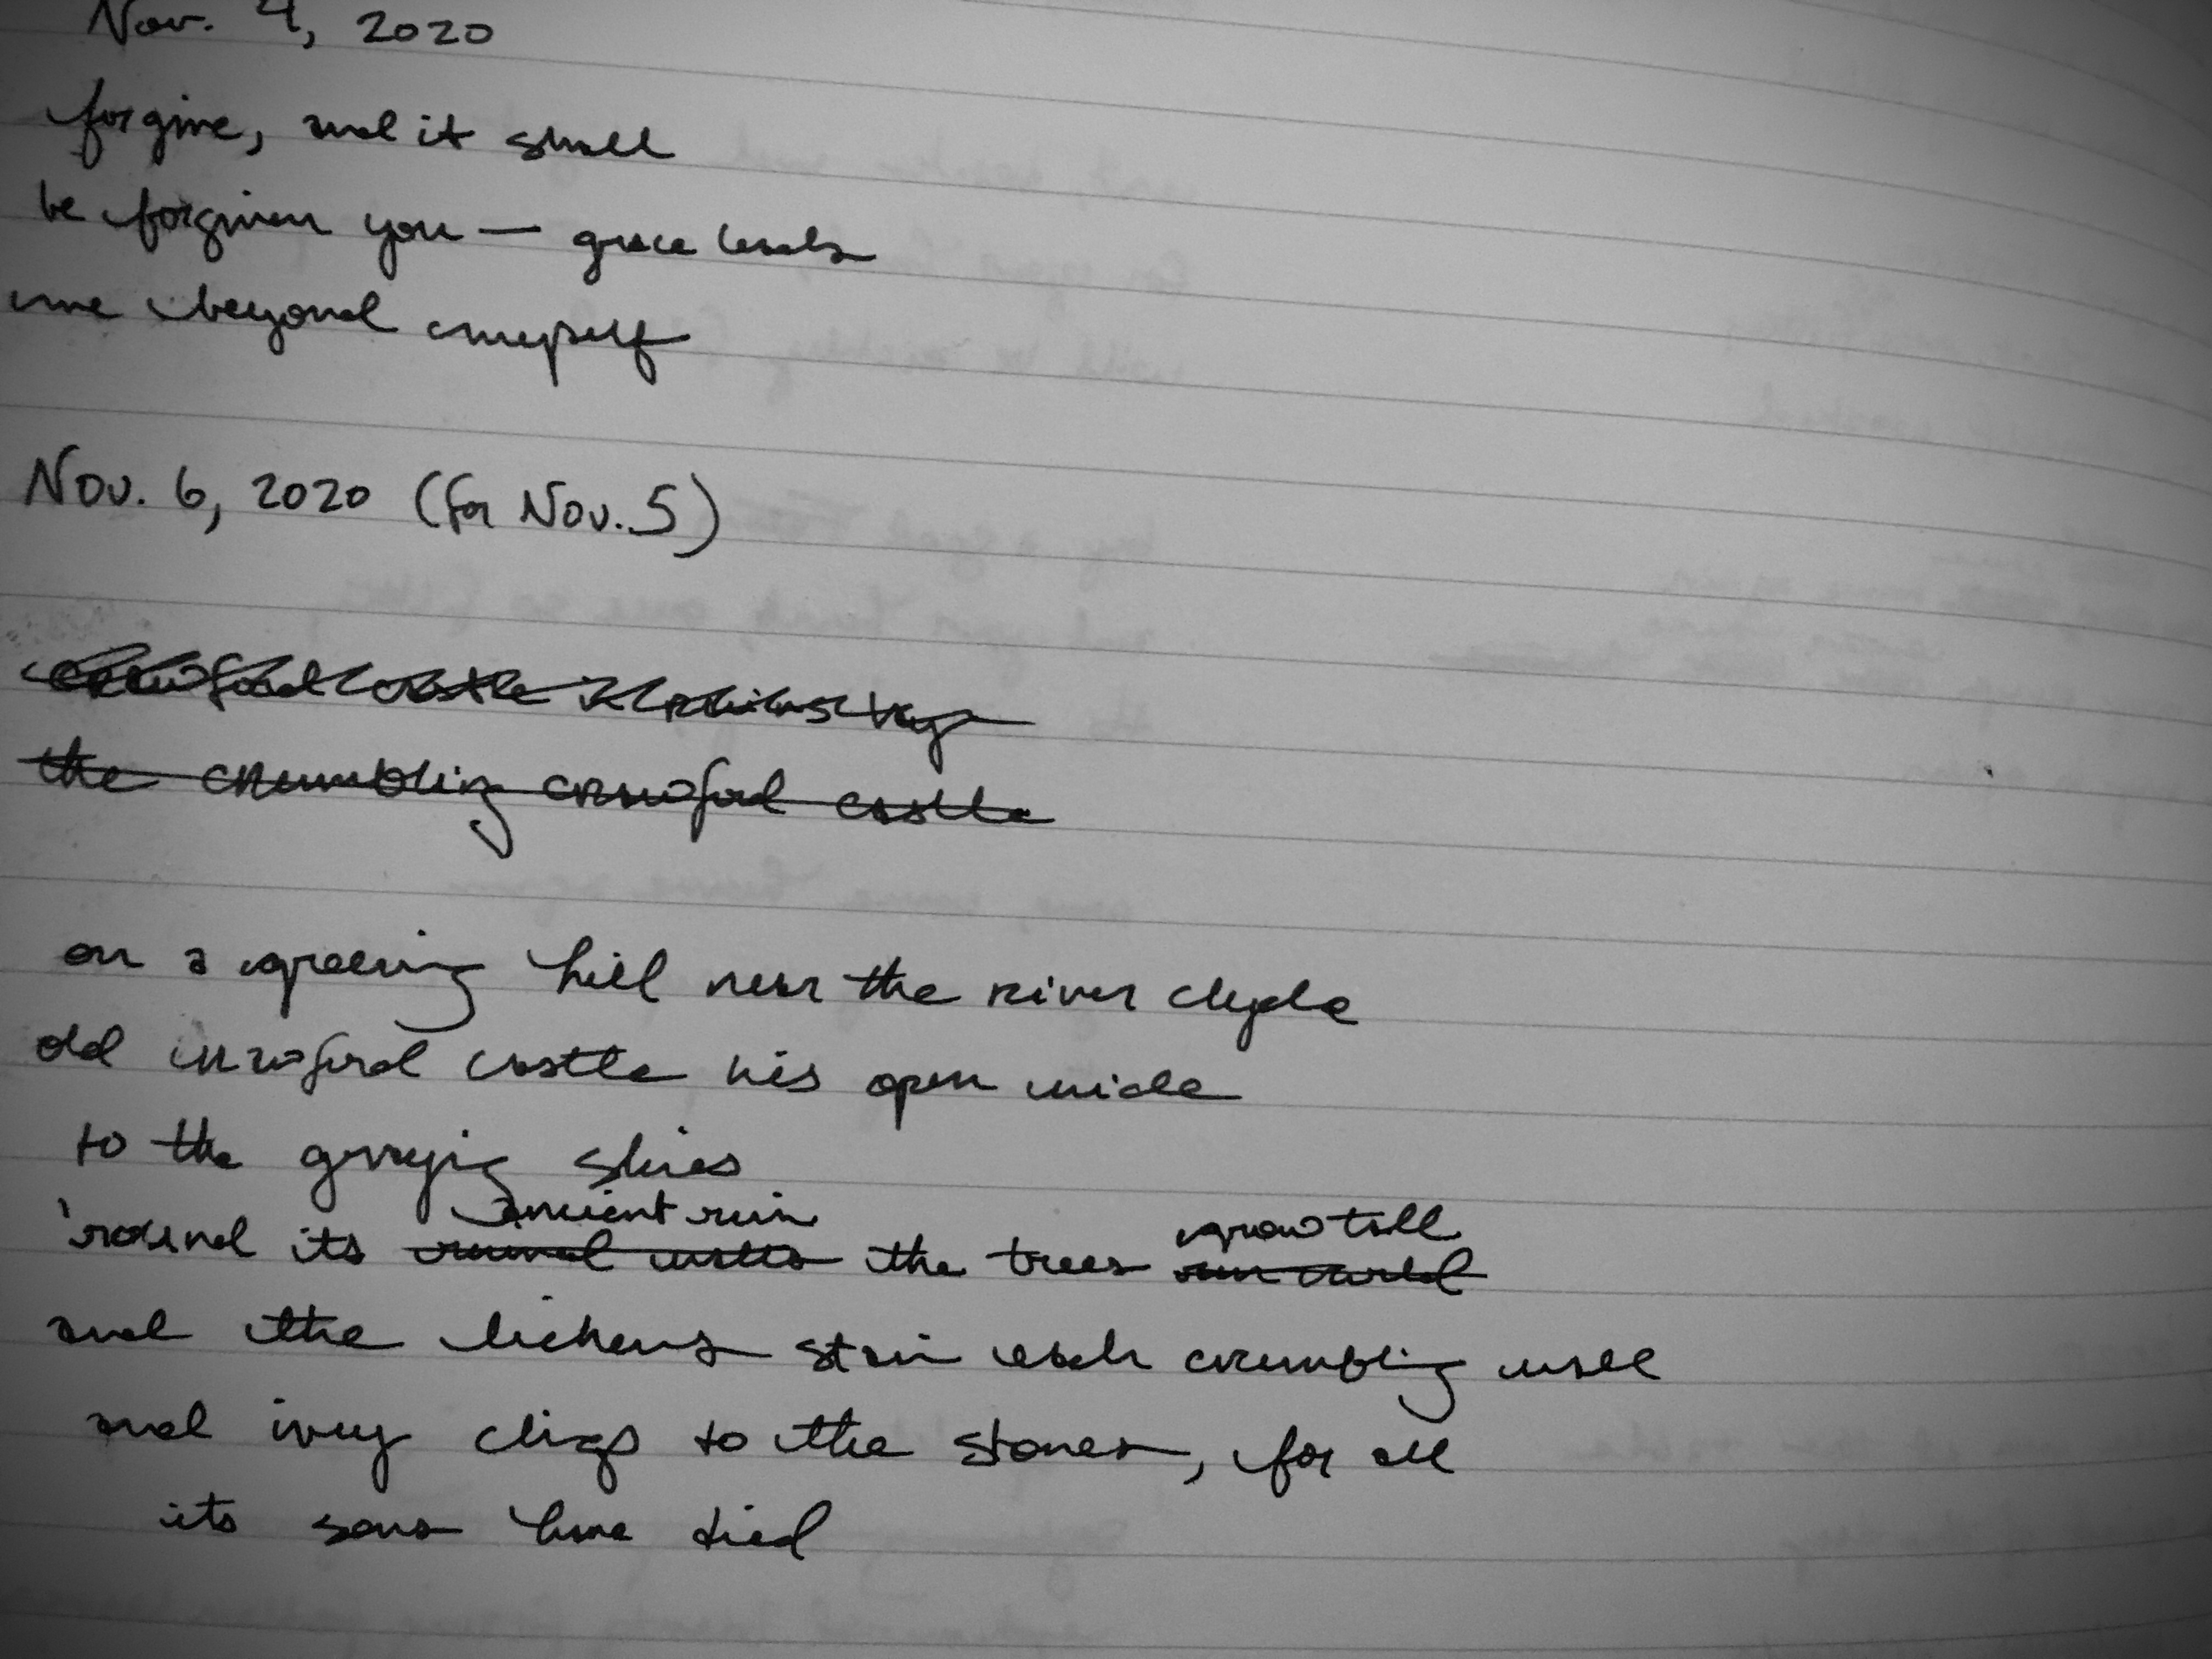 Nov. 4, 2020
forgive, and it shall
be forgiven you — grace leads
me beyond myself
Nov. 6, 2020 (for Nov. 5)
crawford castle
the crumbling crawford castle
on a greening hill near the river clyde
old crawford castle lies open wide
to the graying skies
ancient ruin grow tall
'round its ruined walls the trees
and the lichens stain each crumbling wall
and ivy clings to the stones, for all
its sons have died